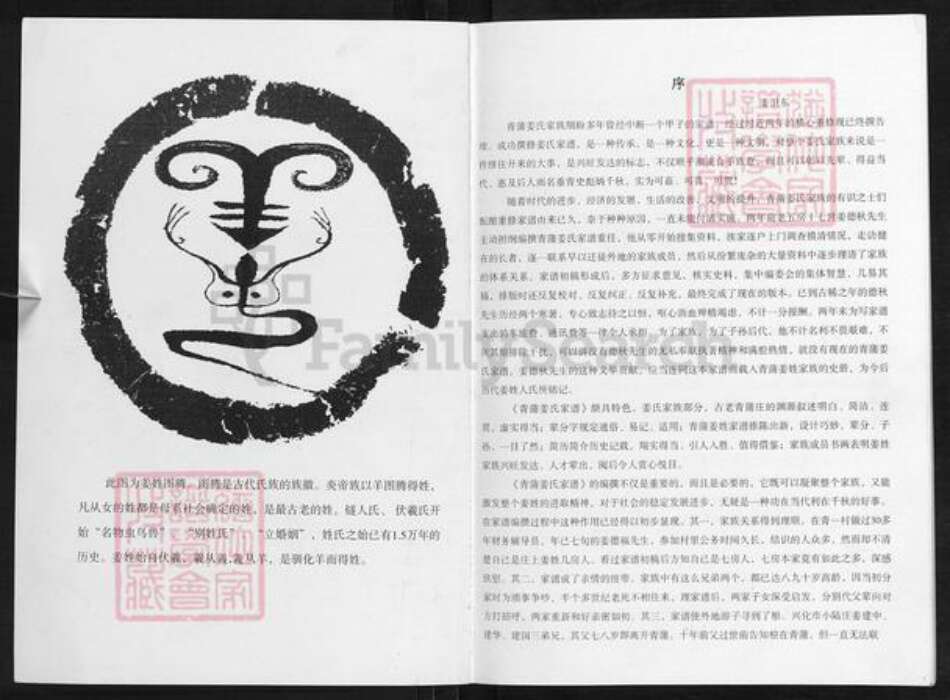 此图为姜姓图腾。图腾是古代氏族的族徽。炎帝族以羊图腾得姓,
凡从女的姓都是母系社会确定的姓,是最古老的姓。燧人氏、伏羲氏开
始“名物虫鸟兽”、“别姓氏”、“立婚姻”,姓氏之始已有1.5万年的
历史。姜姓始自伏羲,羲从羊,是驯化羊而得姓。
序
姜卫东
青蒲姜氏家族续修多年曾经中断一个甲子的家谱,经过将近两年的精心重修现已终撰告
竣。成功撰修姜氏家谱,是一种传承,是一种文化,更是一种文明,对整个姜氏家族来说是一
件继往开来的大事,是兴旺发达的标志,不仅顺乎潮流合乎民意,而且可以恭以先辈,得益当
代,惠及后人而名垂青史彪炳千秋,实为可嘉、可喜、可贺!
随着时代的进步,经济的发展,生活的改善,文明的提升,青蒲姜氏家族的有识之士们
酝酿重修家谱由来已久,奈于种种原因,一直未能付诸实施。两年前老五房十七世姜德秋先生
主动担纲编撰青蒲姜氏家谱重任,他从零开始搜集资料,挨家逐户上门调查摸清情况,走访健
在的长者,逐一联系早以迁徒外地的家族成员,然后从纷繁庞杂的大量资料中逐步理清了家族
的体系关系。家谱初稿形成后,多方征求意见,核实史料,集中编委会的集体智慧,几易其
稿,排版时还反复校对、反复纠正、反复补充,最终完成了现在的版本。已到古稀之年的德秋
先生历经两个寒暑,专心致志持之以恒,呕心沥血殚精竭虑,不计一分报酬,两年来为写家谱
支出的车旅费、通讯费等一律个人承担。为了家族,为了子孙后代,他不计名利不畏艰难,不
厌其烦排除干扰,可以讲没有德秋先生的无私奉献执著精神和满腔热情,就没有现在的青蒲姜
氏家谱。姜德秋先生的这种义举贡献,应当连同这本家谱而载入青蒲姜姓家族的史册,为今后
历代姜姓人氏所铭记。
《青蒲姜氏家谱》颇具特色。姜氏家族部分,古老青蒲庄的渊源叙述明白、简洁、连
贯、虚实得当;辈分字规定通俗、易记、适用;青蒲姜姓家谱推陈出新,设计巧妙,辈分、子
孙,一目了然;简历简介历史记载,翔实得当,引人入胜,值得借鉴;家族成员书画表明姜姓
家族兴旺发达、人才辈出,阅后令人赏心悦目。
《青蒲姜氏家谱》的编撰不仅是重要的,而且是必要的。它既可以凝聚整个家族,又能
激发整个姜姓的进取精神,对于社会的稳定发展进步,无疑是一种功在当代利在千秋的好事。
在家谱编撰过程中这种作用已经得以初步显现。其一,家族关系得到理顺。在青一村做过30多
年财务辅导员、年已七旬的姜德福先生,参加村里公务时间久长,结识的人众多,然而却不清
楚自己是庄上姜姓几房人。看过家谱初稿后方知自己是七房人,七房本家竟有如此之多,深感
欣慰。其二,家谱成了亲情的纽带。家族中有这么兄弟两个,都已达八九十岁高龄,因当初分
家时为琐事争吵,半个多世纪老死不相往来。理家谱后,两家子女深受启发,分别代父辈向对
方打招呼,两家重新和好亲密如初。其三,家谱使外地游子寻到了根。兴化市小陆庄姜建中、
建华、建国三弟兄,其父七八岁即离开青蒲,十年前父过世前告知根在青蒲,但一直无法联
FamilySearch